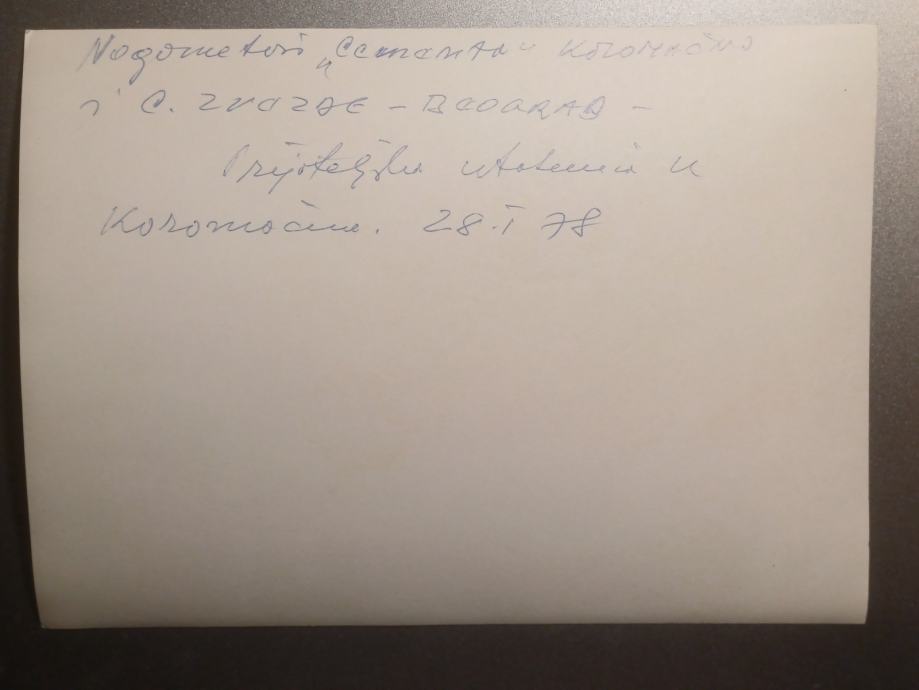 Nogometaši „Cementa" Koromačno
i C. ZVEZDE - BEOGRAD -
Prijateljska utakmica u
Koromačnu. 28.I 78